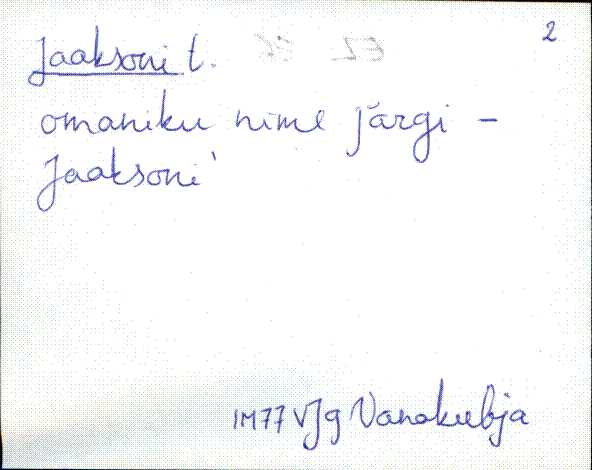 2
Jaaksoni t.
omaniku nime järgi –
Jaaksoni'
IM77 VJg Vanakubja